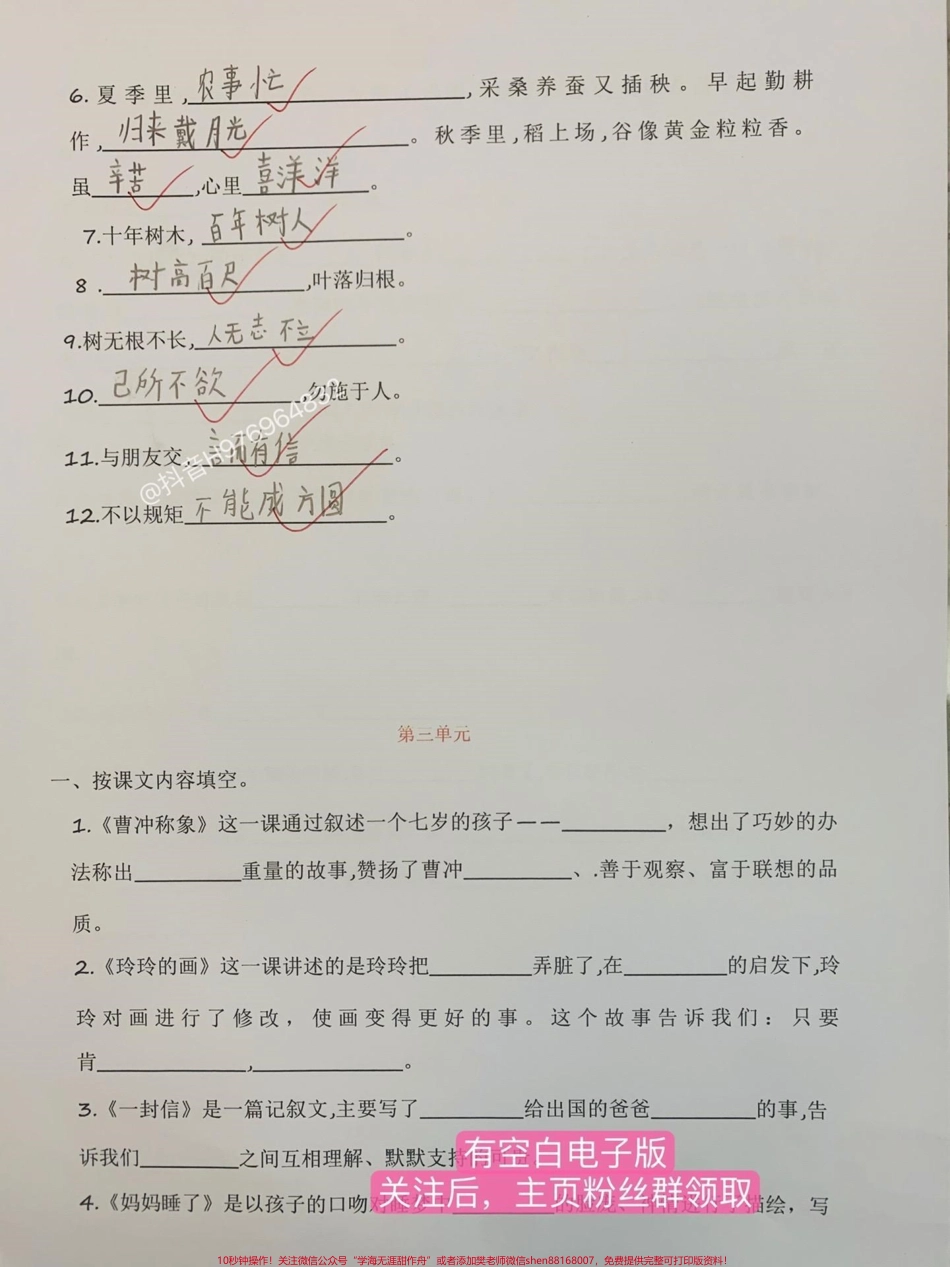 6. 夏季里,农事忙,采桑养蚕又插秧。早起勤耕
作,归来戴月光。秋季里,稻上场,谷像黄金粒粒香。
虽辛苦,心里喜洋洋。
7.十年树木,百年树人。
8.树高百尺,叶落归根。
9.树无根不长,人无志不立。
10.己所不欲,勿施于人。
11.与朋友交,言而有信。
12.不以规矩不能成方圆。
第三单元
一、按课文内容填空。
1.《曹冲称象》这一课通过叙述一个七岁的孩子——________,想出了巧妙的办
法称出________重量的故事,赞扬了曹冲________、.善于观察、富于联想的品
质。
2.《玲玲的画》这一课讲述的是玲玲把________弄脏了,在________的启发下,玲
玲对画进行了修改,使画变得更好的事。这个故事告诉我们:只要
肯________,________。
3.《一封信》是一篇记叙文,主要写了________给出国的爸爸________的事,告
诉我们________之间互相理解、默默支持
4.《妈妈睡了》是以孩子的口吻对睡梦中________的脸庞、神情进行了描绘,写
有空白电子版
关注后,主页粉丝群领取
10秒钟操作!关注微信公众号“学海无涯甜作舟”或者添加樊老师微信shen88168007,免费提供完整可打印版资料!